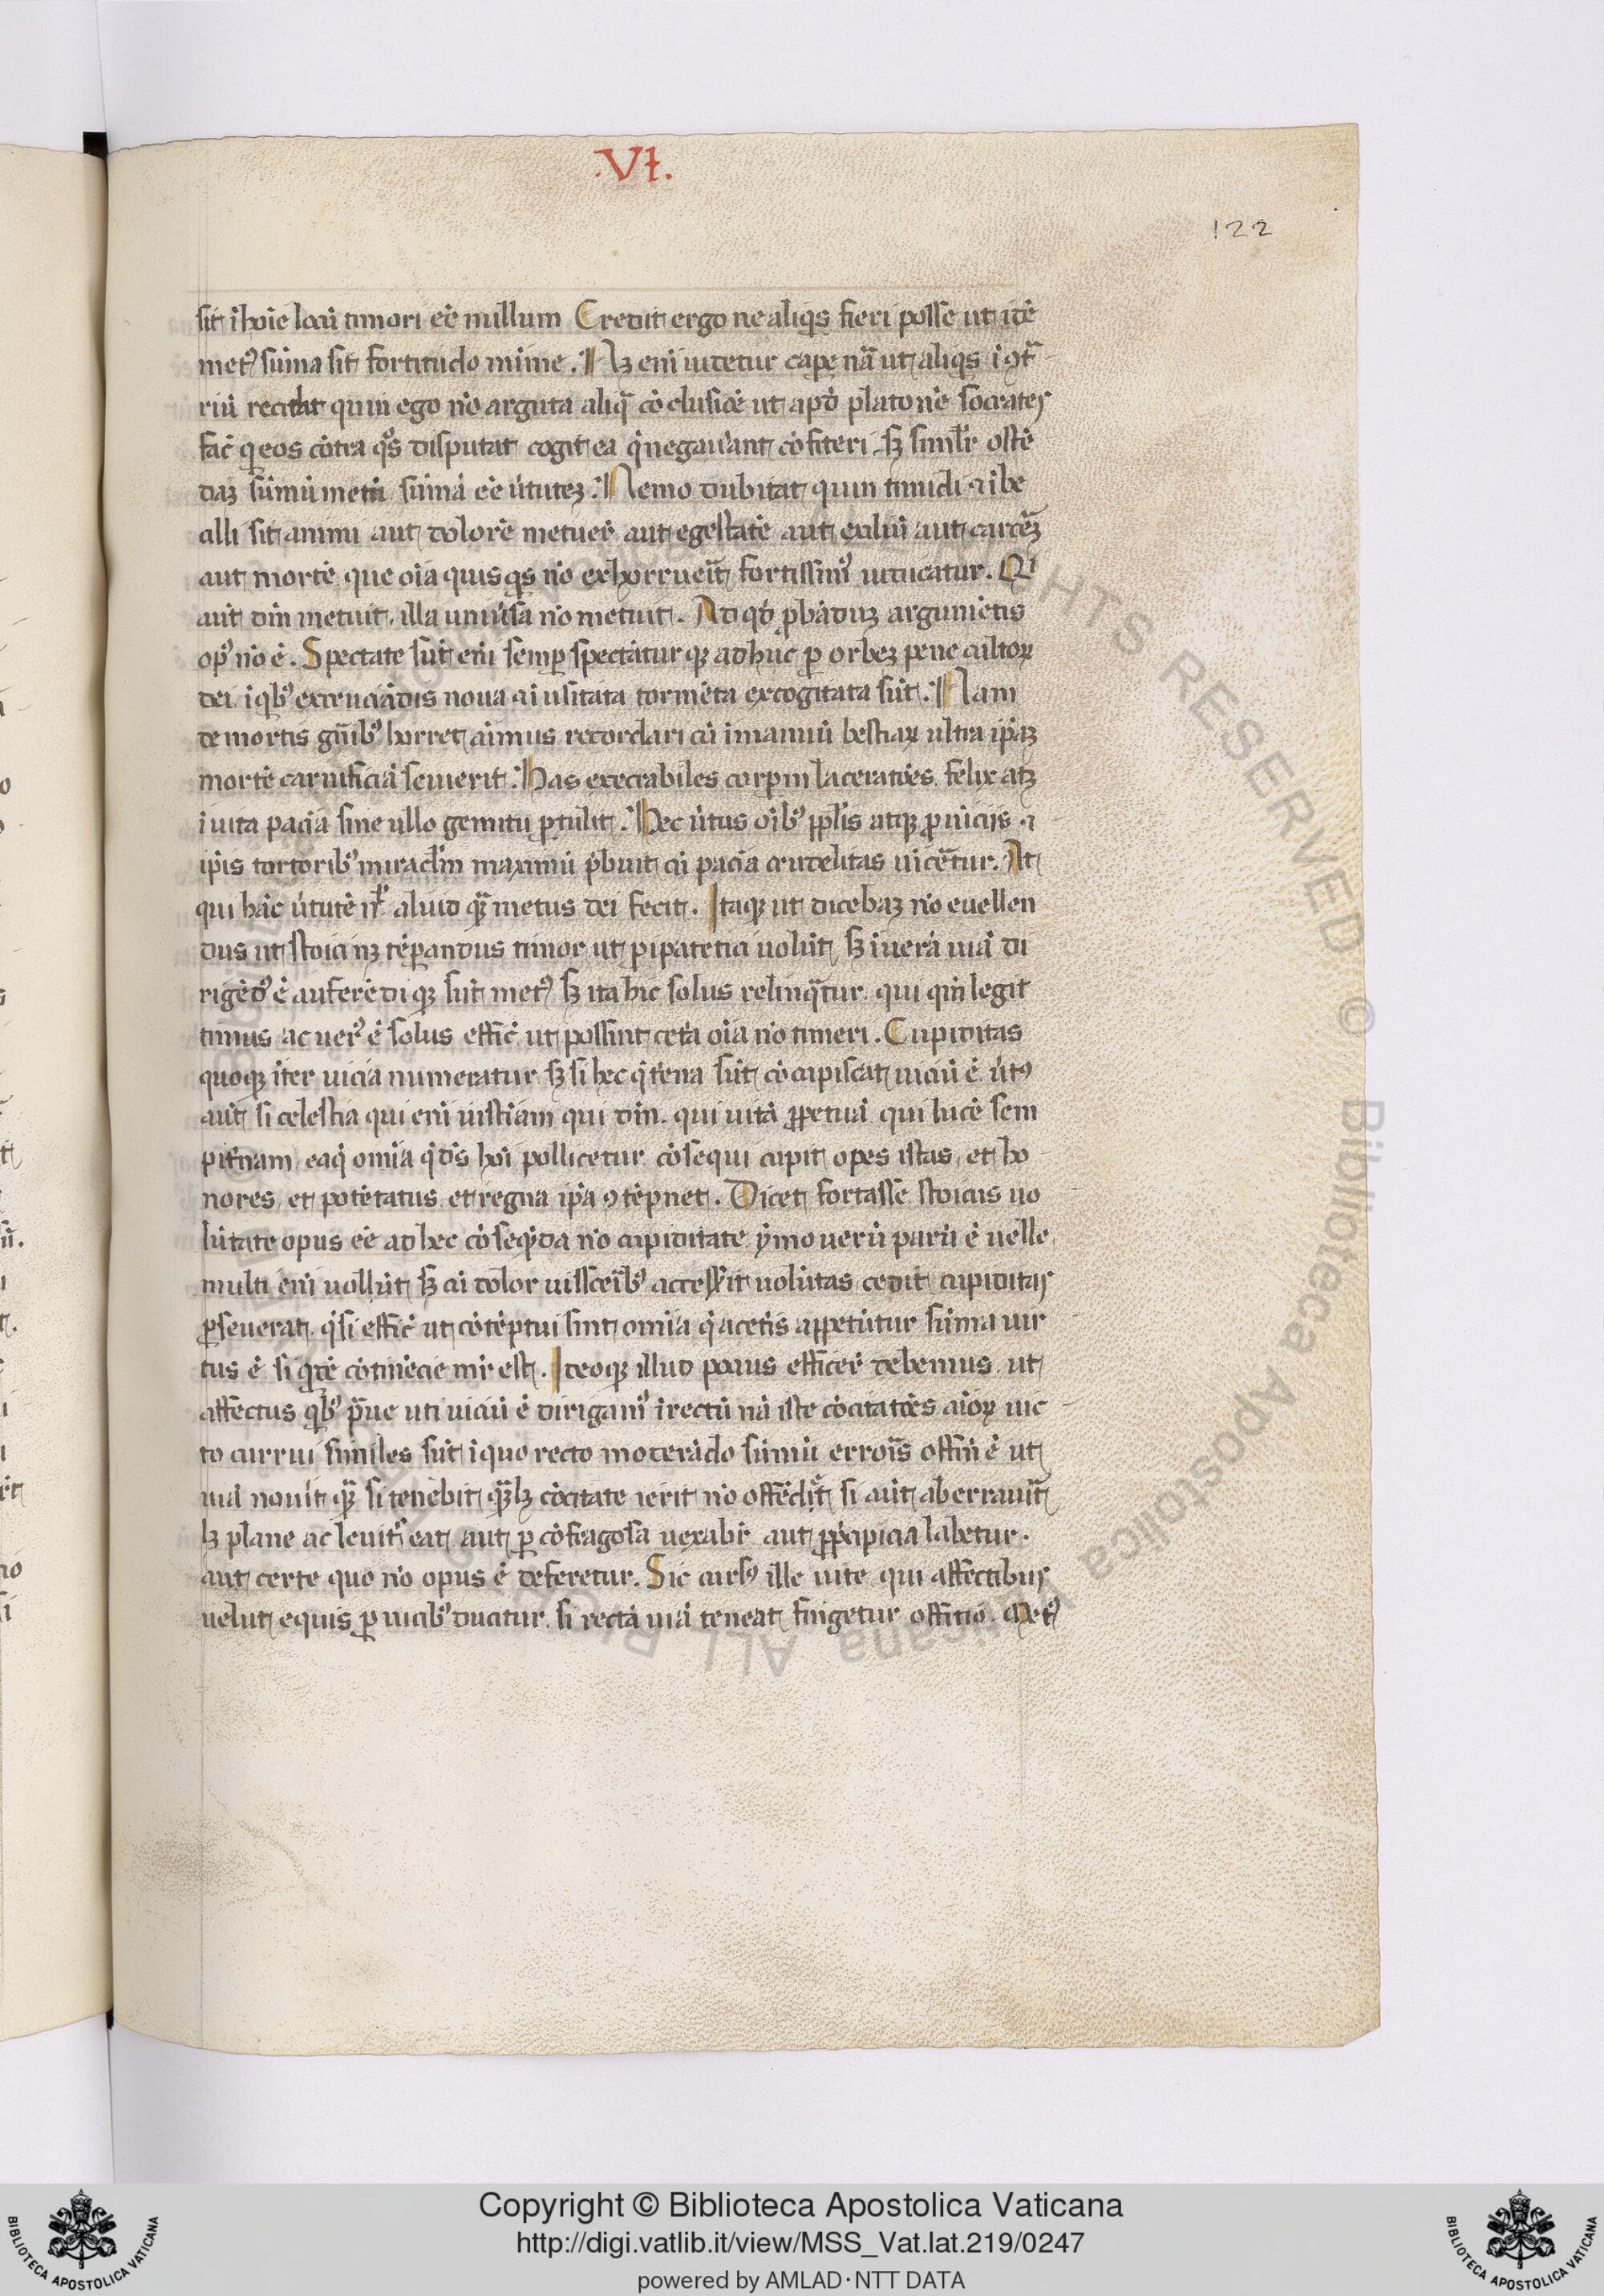 .VI.
122
sit ī hoīe locū timori eē nullum Credit ergo ne aliq̄s fieri posse ut idē
met⁹ sūma sit fortitudo mīme. Nꝫ enī uidetur caꝑe nā̄ ut aliq̄s ī ꝯt̄
riū recidat quin ego nō arguta aliq̄ cōclusiōe ut apd̄ platonē socrates
fac̄ q̄ eos cōtra q̄s disputat cogit ea q̄ negauāant cōfiteri sꝫ simlr̄ ostē
daꝫ sūmū metū sūmā eē ūtuteꝫ. Nemo dubitat quin timidi ⁊ ibe
alli sit animi aut dolorē metuer̄ aut egestatē aut exiliū aut carcēꝫ
aut mortē que oīa quisq̄s nō exhorrueīt fortissim⁹ iudicatur. Qi
aūt dm̄ metuit illa uniūsa nō metuit. Ad qd̄ ꝓbāduꝫ argumētis
op⁹ nō ē. Spectate sūt enī semꝑ spectātur qꝫ adhuc ꝑ orbeꝫ pene cultoꝝ
dei ī qb⁹ excruciādis noua ⁊ īusitata tormēta excogitata sūt. Nam
de mortis gn̄ib⁹ horret aīmus recordari cū īmaniū bestiaꝝ ultra ip̄aꝫ
mortē carnificīa seuierit. Has execrabiles corꝑm laceratōes felix atꝫ
īuita pacīa sine ullo gemitu ꝑtulit. Hec ūtus oīb⁹ ppl̄is atqꝫ ꝓuīcijs ⁊
ip̄is tortorib⁹ miracl̄m maximū p̄buit cū pacīa crudelitas uīcētur. At
qui hāc ūtutē n̄ aliud qꝫ̄ metus dei fecit. Itaqꝫ ut dicebaꝫ nō euellen
dus ut stoici nꝫ tēꝑandus timor ut ꝑipatetici uolūt sꝫ ī uerā uiā di
rigēd⁹ ē auferēdi qꝫ sūt met⁹ sꝫ ita hic solus relinq̄tur qui qm̄ legit
timus ac uer⁹ ē solus effic̄ ut possint cet̄a oīa nō timeri. Cupiditas
quoqꝫ īter uicia numeratur sꝫ si hec q̄ t̄ena sūt cōcupiscat uiciū ē ūt⁹
aūt si celestia qui enī iusticiam qui dm̄ qui uitā ꝑpetuā qui lucē sem
pit̄nam eaq̄ omīa q̄ d̄s hoī pollicetur cōsequi cupit opes istas et ho
nores et potētatus et regna ip̄a ꝯtēpnet. Dicet fortasse stoicus uo
lūtate opus eē ad hec cōseq̄da nō cupiditate ẏmo uerū parū ē uelle
multi enī uollūt sꝫ cū dolor uissceīb⁹ accesserit uolūtas cedit cupiditas
ꝑseuerat q̄ si effic̄ ut cōtēptui sint omīa q̄ a cet̄is appetūtur sūma uir
tus ē si q̄dē cōtinēcie mr̄ est. Ideoqꝫ illud pocius efficer̄ debemus ut
affectus qb⁹ p̄ue uti uiciū ē dirigam⁹ ī rectū nā iste cōcitatōes aīoꝝ iūc
to currui similes sūt ī quo recto moderādo sūmū errois̄ offm̄ ē ut
uiā nouit qꝫ̄ si tenebit qꝫ̄lꝫ cōcitate ierit nō offēdīt si aūt aberrauīt
lꝫ plane ac leuit̄ eat aut ꝑ cōfragosa uexabr̄ aut ꝑ p̄cipicia labetur.
aut certe quo nō opus ē deferetur. Sic curs⁹ ille uite qui affectibus
uelut equis ꝑuicib⁹ ducitur si rectā uiā teneat fūgetur offitio. Met⁹
Copyright © Biblioteca Apostolica Vaticana
http://digi.vatlib.it/view/MSS_Vat.lat.219/0247
powered by AMLAD·NTT DATA
BIBLIOTECA APOSTOLICA VATICANA
BIBLIOTECA APOSTOLICA VATICANA